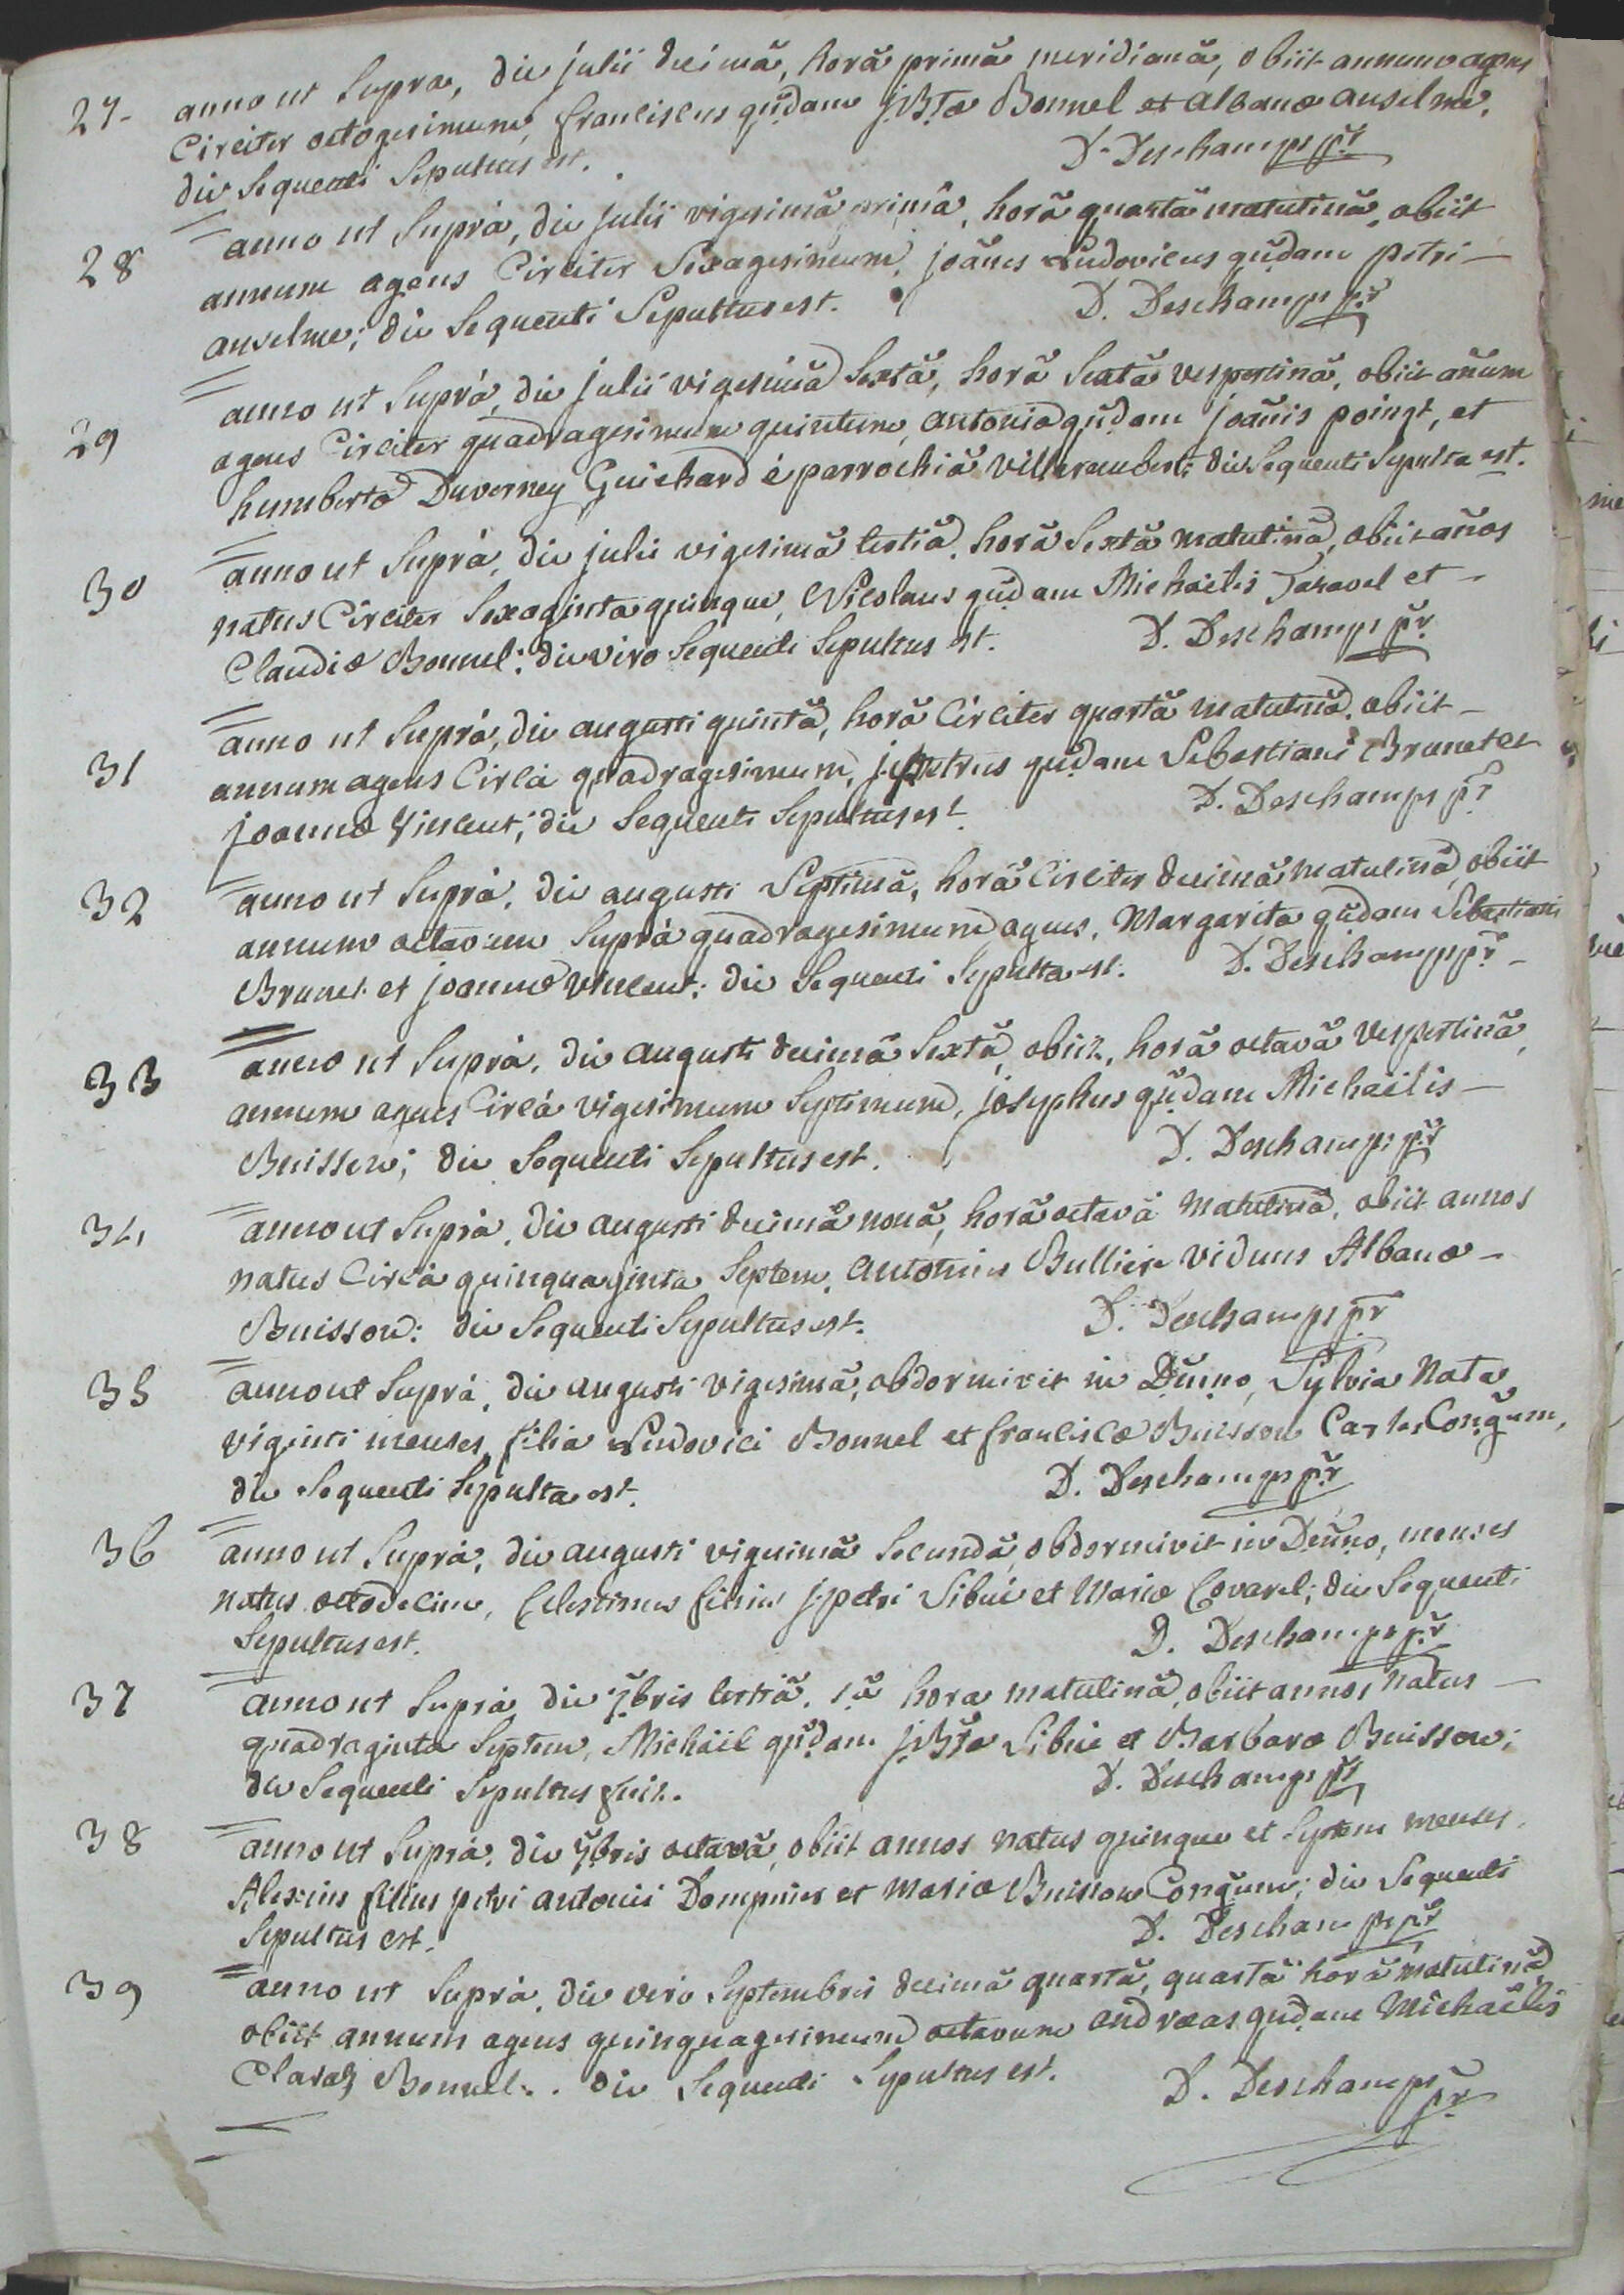 27- anno ut Supra, die julii decimâ, horâ primâ meridianâ, obiit annum agens
Circiter octogesimum, franciscus qūdam j.Btæ Bonnel et albanæ anselme,
die Sequenti Sepultus est. D. Deschamps pr̄
28 anno ut Suprà, die julii vigesimâ primâ, horâ quartâ matutinâ, obiit
annum agens Circiter Sexagesimum, joānes Ludovicus qūdam petri –
anselme; die Sequenti Sepultus est. D. Deschamps pr̄
29 anno ut Suprà, die julii vigesimâ Sextâ, horâ Sextâ vespertinâ, obiit añum
agens Circiter quadragesimum quintum, antonia qūdam joānis poingt, et
humbertæ Duverney Guichard è parrochiâ Villarembert; die Sequenti Sepulta est.
30 anno ut Suprà, die julii vigesimâ tertiâ, horâ Sextâ matutinâ, obiit años
natus Circiter Sexaginta quinque, Nicolaus qūdam Michaëlis Taravel et –
Claudiæ Bonnel; die vero Sequenti Sepultus est. D. Deschamps pr̄
31 anno ut Suprà, die augusti quintâ, horâ Circiter quartâ matutinâ, obiit –
annum agens Circà quadragesimum, j.petrus qūdam Sebastiani Brunet et
joannæ Vincent; die Sequenti Sepultus est. D. Deschamps pr̄
32 anno ut Suprà, die augusti Septimâ, horâ Circiter decimâ matutinâ, obiit
annum octavum Suprà quadragesimum agens, Margarita qūdam Sebastiani
Brunet et joannæ Vincent; die Sequenti Sepulta est. D. Deschamps pr̄ –
33 anno ut Suprà, die augusti decimâ Sextâ, obiit, horâ octavâ vespertinâ,
annum agens Circà vigesimum Septimum, josephus qūdam Michaëlis –
Buisson; die Sequenti Sepultus est. D. Deschamps pr̄
34 anno ut Suprà, die augusti decimâ nonâ, horâ octavâ matutinâ, obiit annos
natus Circà quinquaginta Septem, antonius Bullier viduus Albanæ –
Buisson; die Sequenti Sepultus est. D. Deschamps pr̄
35 anno ut Suprà, die augusti vigesimâ, obdormivit in Dūno, Sylvia Nata
viginti menses, filia Ludovici Bonnel et franciscæ Buisson Conḡum,
die Sequenti Sepulta est. D. Deschamps pr̄
36 anno ut Suprà, die augusti vigesimâ Secundâ, obdormivit in Dūno, menses
natus octodecim, Celestinus filius j.petri Sibué et Mariæ Covarel; die Sequenti
Sepultus est. D. Deschamps pr̄
37 anno ut Suprà, die 7bris tertiâ, 1â hora matutinâ, obiit annos natus –
quadraginta Septem, Michaël qūdam j.Btæ Sibué et Barbaræ Buisson;
die Sequenti Sepultus fuit. D. Deschamps pr̄
38 anno ut Suprà, die 7bris octavâ, obiit annos natus quinque et Septem menses,
Alexius filius petri antonii Dompnier et Mariæ Buisson Conḡum; die Sequenti
Sepultus est. D. Deschamps pr̄
39 anno ut Suprà, die vero Septembris decimâ quartâ, quartâ horâ matutinâ,
obiit annum agens quinquagesimum octavum andræas qūdam Michaëlis
Claraz Bonnel. die Sequenti Sepultus est. D. Deschamps
pr̄